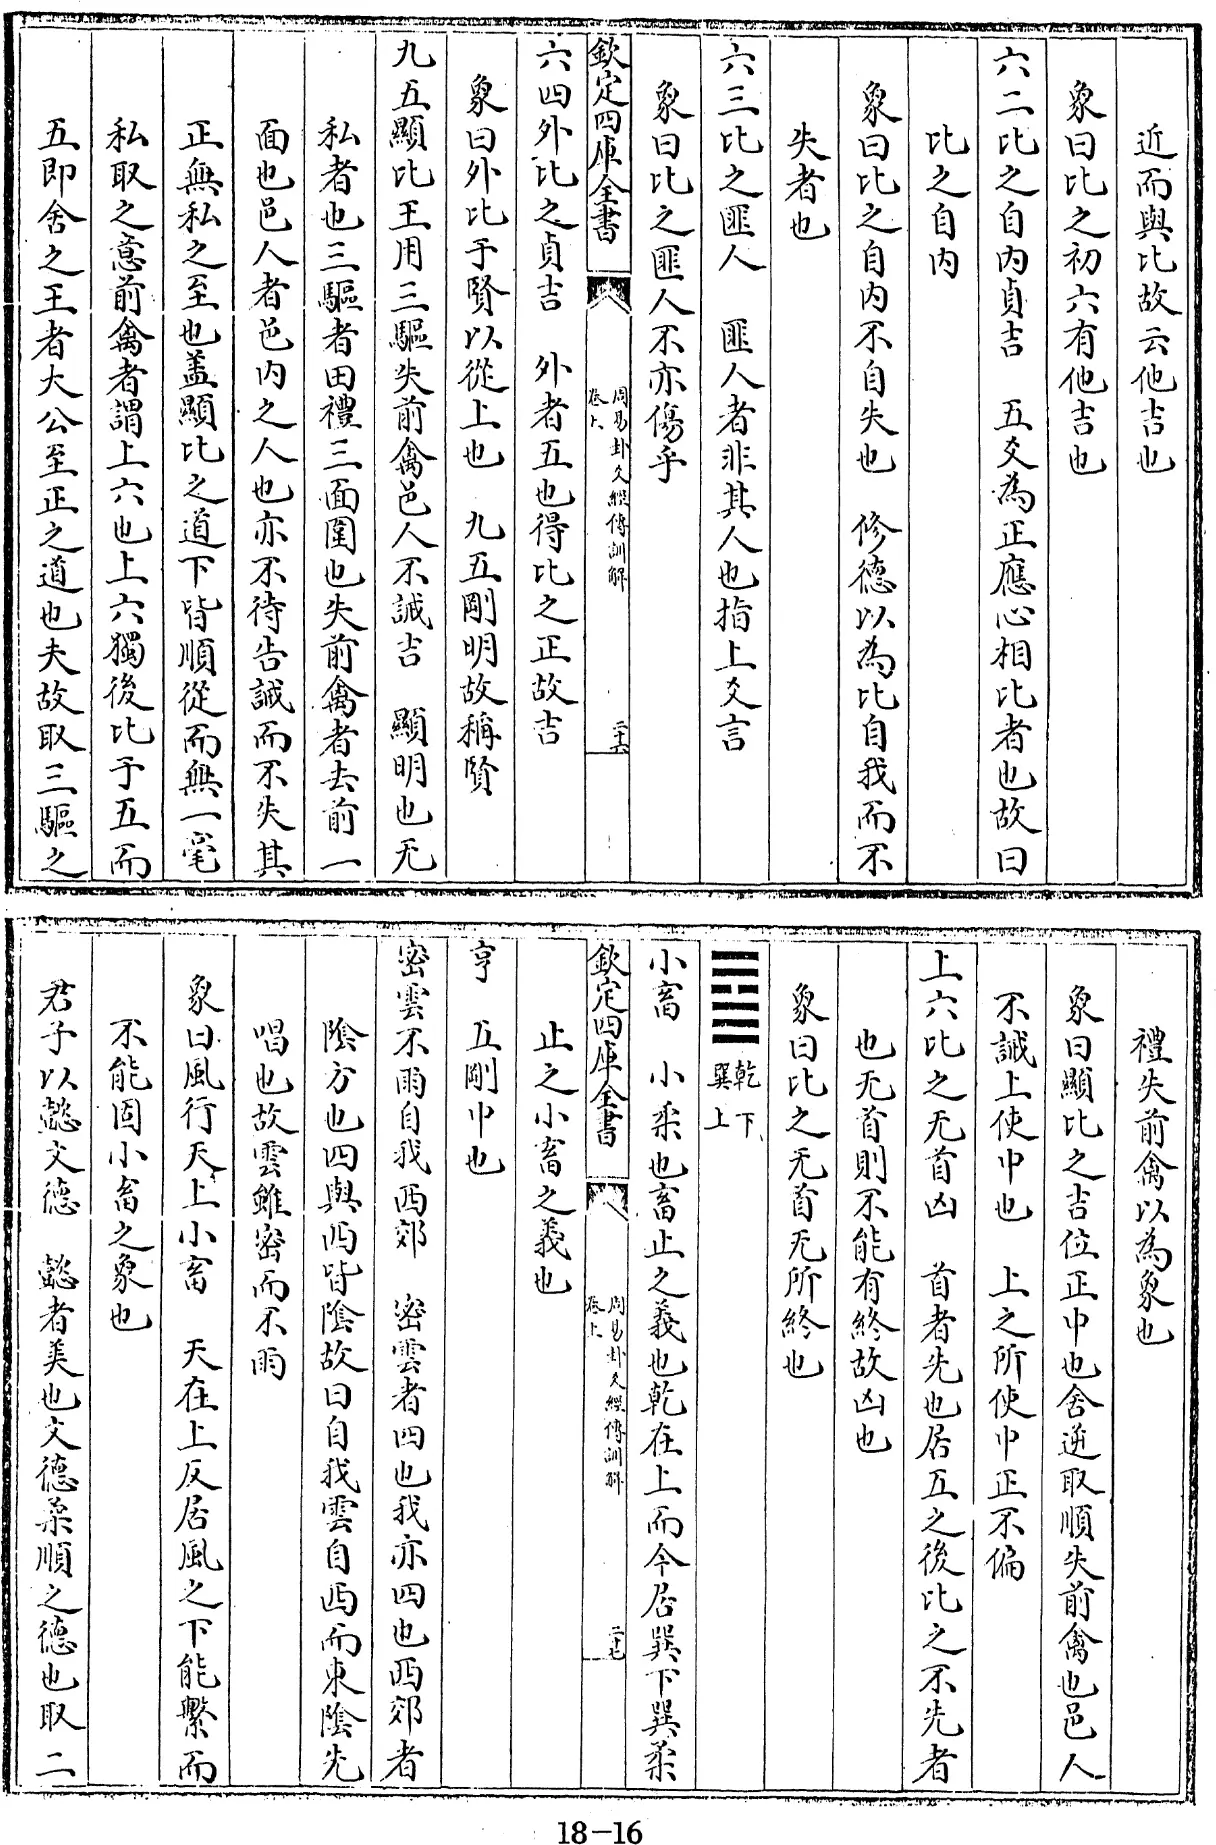 近而與比故云他吉也
象曰比之初六有他吉也
六二比之自內貞吉　五爻為正應心相比者也故曰
比之自内
象曰比之自内不自失也　修德以為比自我而不
失者也
六三比之匪人　匪人者非其人也指上爻言
象曰比之匪人不亦傷乎
欽定四庫全書
周易卦爻經傳訓解
卷上
二十六
六四外比之貞吉　外者五也得比之正故吉
象曰外比于賢以從上也　九五剛明故稱賢
九五顯比王用三驅失前禽邑人不誡吉　顯明也无
私者也三驅者田禮三面圍也失前禽者去前一
面也邑人者邑内之人也亦不待告誡而不失其
正無私之至也蓋顯比之道下皆順從而無一毫
私取之意前禽者謂上六也上六獨後比于五而
五即舍之王者大公至正之道也夫故取三驅之
禮失前禽以為象也
象曰顯比之吉位正中也舍逆取順失前禽也邑人
不誡上使中也　上之所使中正不偏
上六比之无首凶　首者先也居五之後比之不先者
也无首則不能有終故凶也
象曰比之无首无所終也
乾下
巽上
小畜　小柔也畜止之義也乾在上而今居巽下巽柔
欽定四庫全書
周易卦爻經傳訓解
卷上
二十七
止之小畜之義也
亨　五剛中也
密雲不雨自我西郊　密雲者四也我亦四也西郊者
陰方也四與西皆陰故曰自我雲自西而東陰先
唱也故雲雖密而不雨
象曰風行天上小畜　天在上反居風之下能繫而
不能固小畜之象也
君子以懿文德　懿者美也文德柔順之德也取二
18-16